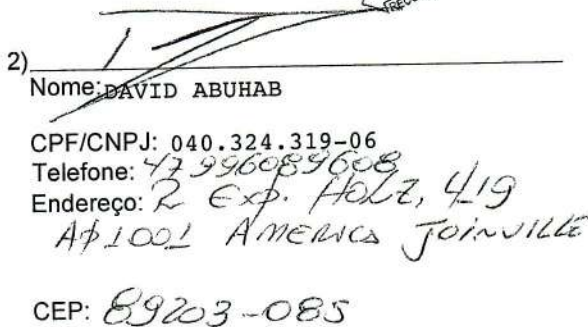 2)
Nome: DAVID ABUHAB
CPF/CNPJ: 040.324.319-06
Telefone: 47 996089608
Endereço: R Exp. HOLZ, 419
AP 1001 AMERICA JOINVILLE
CEP: 89203-085